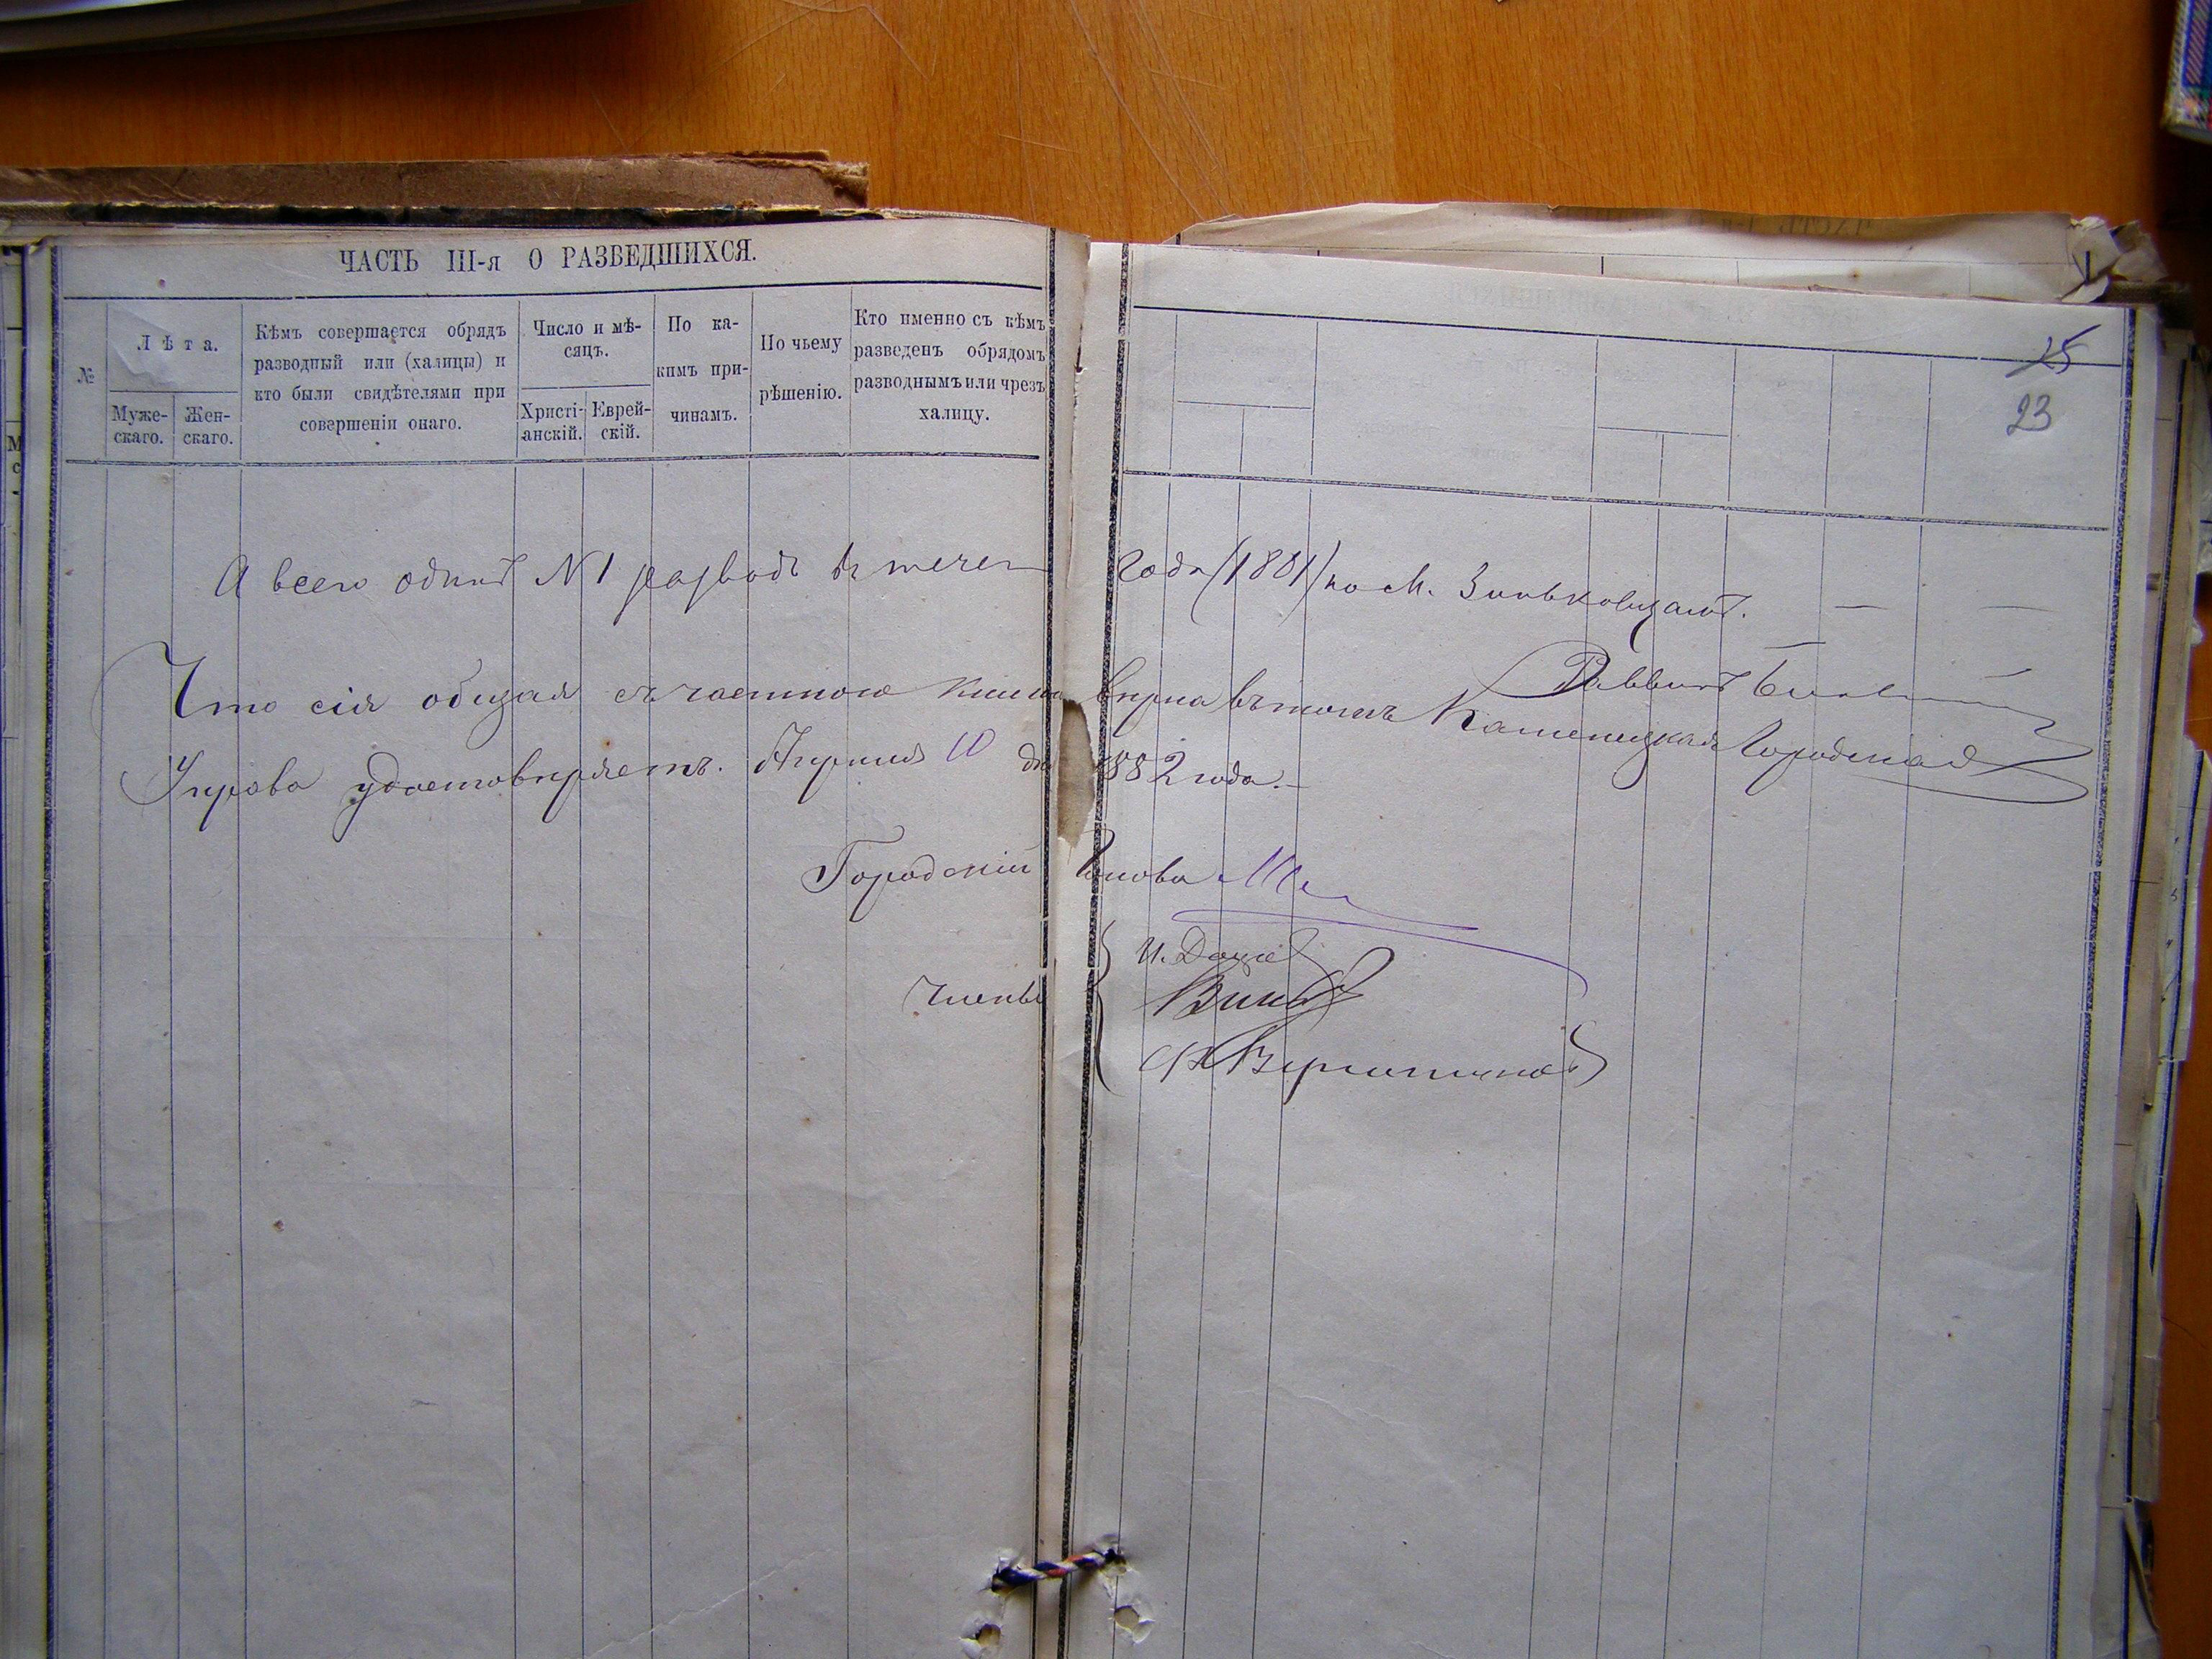 ЧАСТЬ III-я О РАЗВЕДШИХСЯ.
№
Лѣта.
Муже-
скаго.
Жен-
скаго.
Кѣмъ совершается обрядъ
разводный или (халицы) и
кто были свидѣтелями при
совершеніи онаго.
Число и мѣ-
сяцъ.
Христі-
анскій.
Еврей-
скій.
По ка-
кимъ при-
чинамъ.
По чьему
рѣшенію.
Кто именно съ кѣмъ
разведенъ обрядомъ
разводнымъ или чрезъ
халицу.
25
23
А всего одинъ N 1 разводъ въ течен года (1881) по М. Зиньковцамъ.
Раввинъ
Что сія общая съ частною книга вѣрна въ томъ Каменецкая Городская
Управа удостовѣряетъ. Апрѣля 10 дня 1882 года.
Городской Голова
Члены
И.